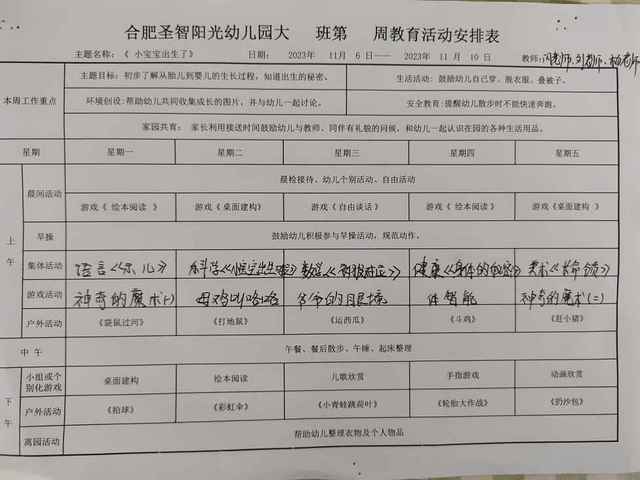 合肥圣智阳光幼儿园大 班第 周教育活动安排表
主题名称：《 小宝宝出生了》 日期： 2023年 11月 6 日—— 2023年 11 月 10 日 教师：
本周工作重点
主题目标：初步了解从胎儿到婴儿的生长过程，知道出生的秘密。 生活活动：鼓励幼儿自己穿、脱衣服、叠被子。
环境创设：帮助幼儿共同收集成长的图片，并与幼儿一起讨论。 安全教育：提醒幼儿散步时不能快速奔跑。
家园共育： 家长利用接送时间鼓励幼儿与教师、同伴有礼貌的问候，和幼儿一起认识在园的各种生活用品。
星期 星期一 星期二 星期三 星期四 星期五
上午
晨间活动 晨检接待、幼儿个别活动、自由活动
游戏《 绘本阅读 》 游戏《 桌面建构》 游戏《 自由谈话 》 游戏《 绘本阅读 》 游戏《桌面建构 》
早操 鼓励幼儿积极参与早操活动，规范动作。
集体活动 语言《 儿》 科学《 宝宝出生 》 数学《 对应》 健康《身体的秘密》 美术《 》
游戏活动 神奇的魔术(一) 母鸡叫咯咯 爷爷的 体智能 神奇的魔术(二)
户外活动 《袋鼠过河》 《打地鼠》 《运西瓜》 《斗鸡》 《赶小猪》
中 午 午餐、餐后散步、午睡、起床整理
下午
小组或个别化游戏 桌面建构 绘本阅读 儿歌欣赏 手指游戏 动画欣赏
户外活动 《拍球》 《彩虹伞》 《小青蛙跳荷叶》 《轮胎大作战》 《扔沙包》
离园活动 帮助幼儿整理衣物及个人物品